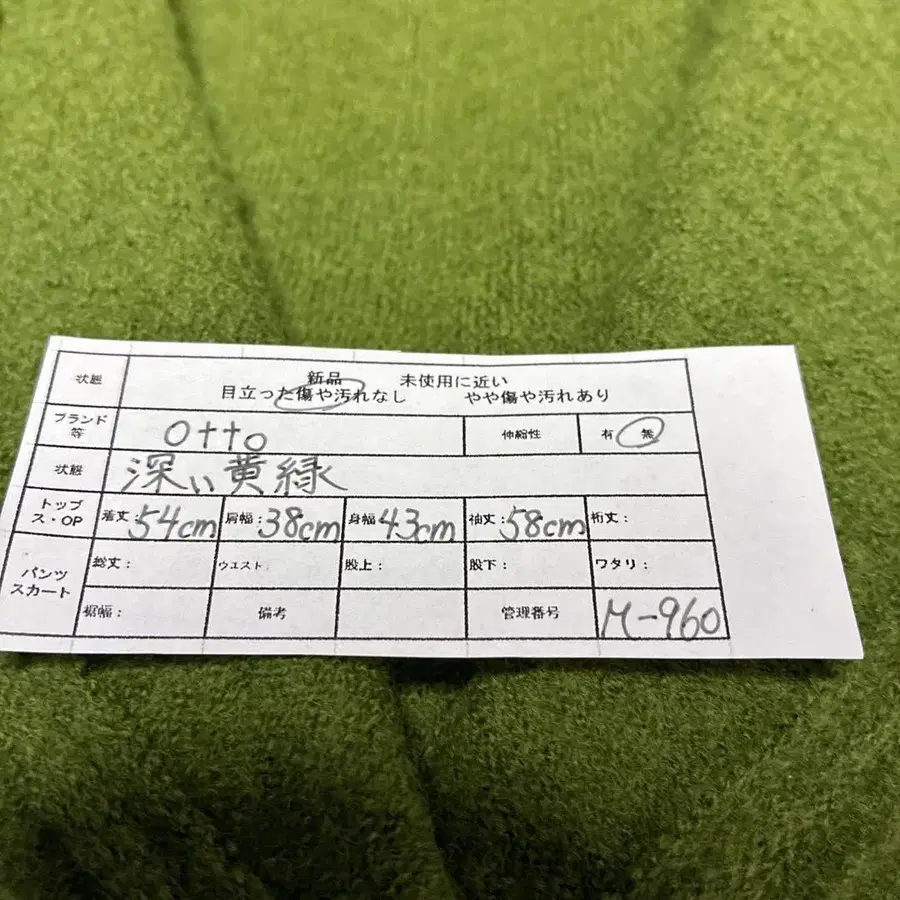 状態 新品 未使用に近い
目立った傷や汚れなし やや傷や汚れあり
ブランド等 otto 伸縮性 有 無
状態 深い黄緑
トップス・OP 着丈:54cm 肩幅:38cm 身幅43cm 袖丈:58cm 裄丈:
パンツスカート 総丈: ウエスト: 股上: 股下: ワタリ:
裾幅: 備考 管理番号 M-960